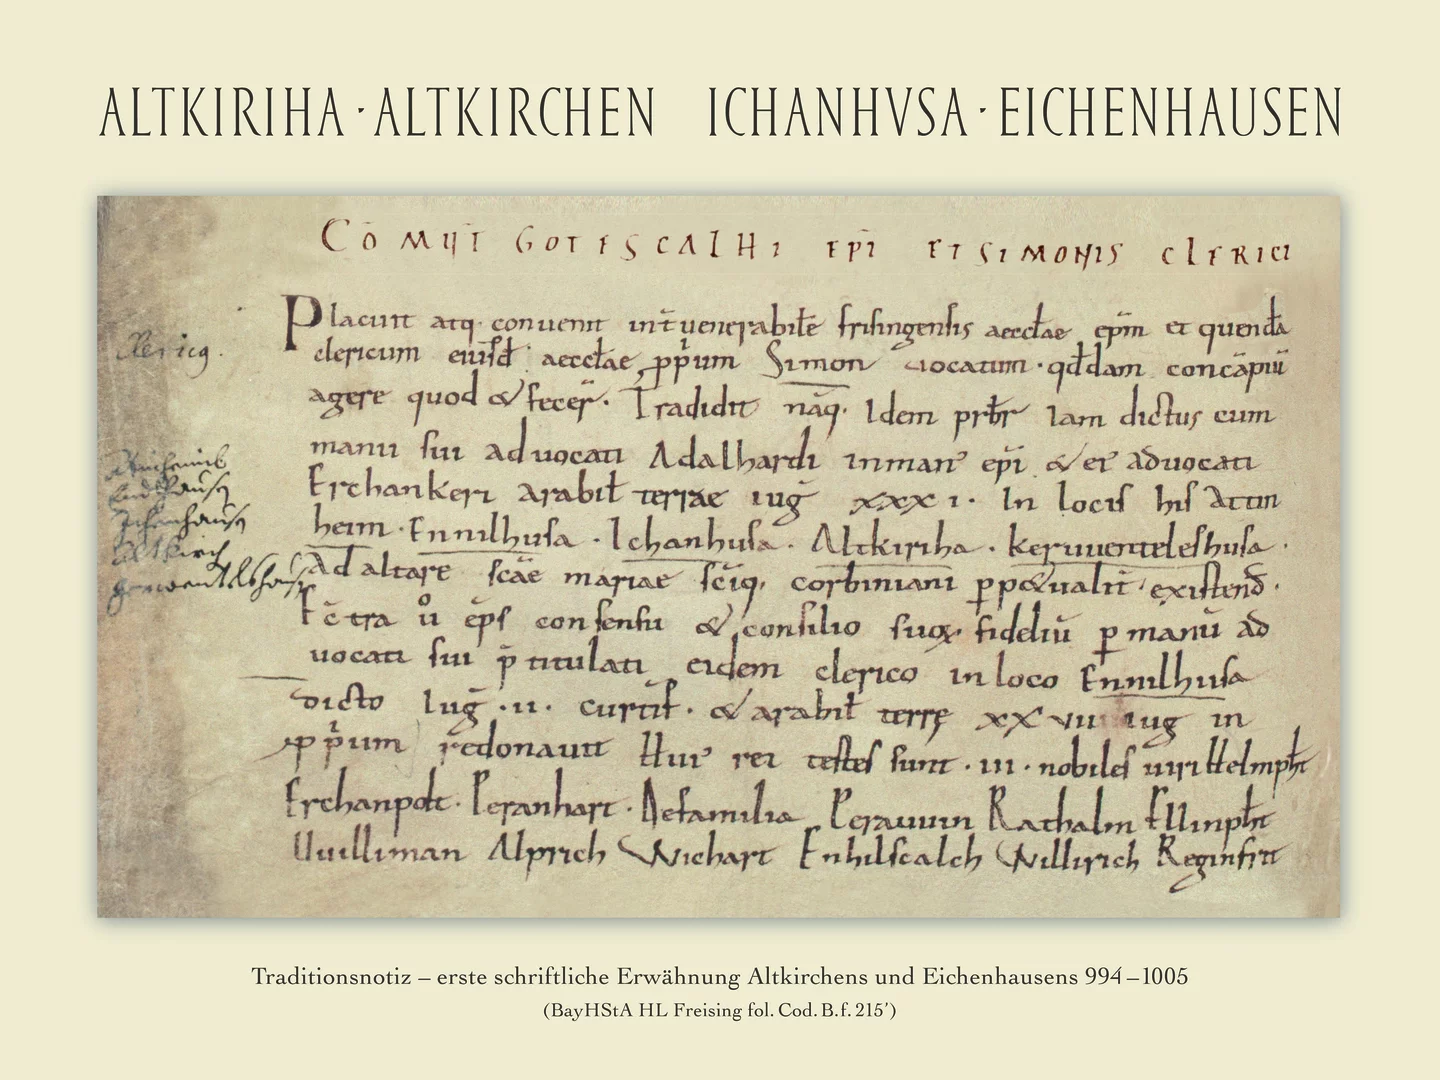 ALTKIRIHA · ALTKIRCHEN ICHANHVSA · EICHENHAUSEN
GOTESCALHI EPI ET SIMONIS CLERICI
Placuit atq. conuenit int uenerabile frisingensis aecctae epm et quenda
clericum eiusd aecctae pprium Simon uocatum · qddam concapiu
agere quod & fecer. Tradidit naq. Idem prbr Iam dictus cum
manu sui aduocati Adalhardi inman' epi & ei' aduocati
Erchankeri arabil terrae iug xxx i · In locis his Attin
heim · Ennilhusa · Ichanhusa · Altkiriha · keruuenteleshusa ·
Ad altare scae mariae sciq. corbiniani pp&ualit existend ·
Ec tra u eps consensu & consilio suox fideliu p manu ad
uocati sui p titulati eidem clerico in loco Ennilhusa
dicto Iug · ii · curtif · & arabil terre xx vii iug in
pprium redonauit Hui' rei testes sunt · iii · nobiles
Erchanpolt · Peranhart · De familia Perauuin Rathalm Ellinpht
Uuilliman Alprich Wichart Enhilscalch Willirich Reginfrit
Traditionsnotiz – erste schriftliche Erwähnung Altkirchens und Eichenhausens 994–1005
(BayHStA HL Freising fol. Cod. B. f. 215')